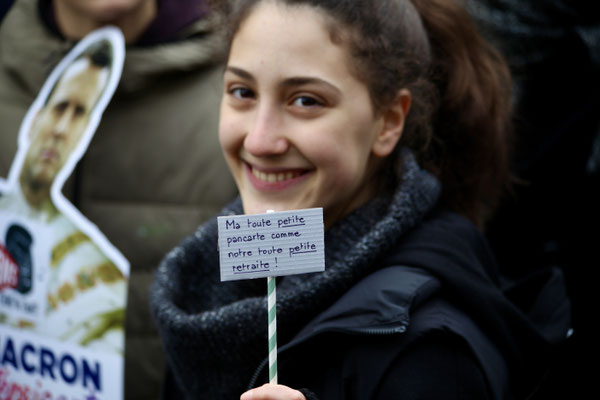 Ma toute petite
pancarte comme
notre toute petite
retraite !
MACRON